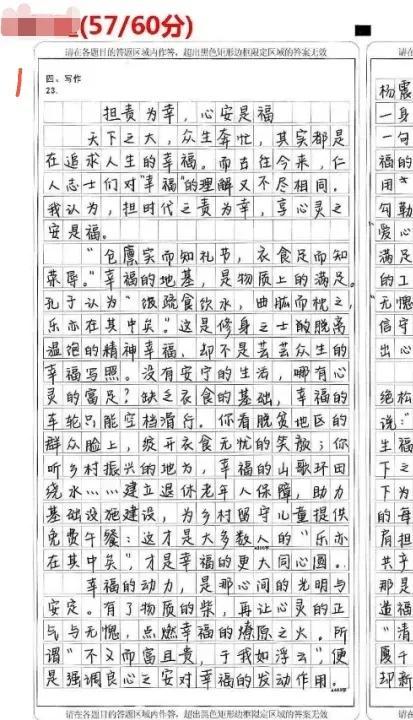 (57/60分)
请在各题目的答题区域内作答，超出黑色矩形边框限定区域的答案无效
1
四、写作
23.
担责为幸，心安是福
天下之大，众生奔忙，其实都是
在追求人生的幸福。而古往今来，仁
人志士们对"幸福"的理解又不尽相同。
我认为，担时代之责为幸，享心灵之
安是福。
"仓廪实而知礼节，衣食足而知
荣辱。"幸福的地基，是物质上的满足。
孔子认为"饭疏食饮水，曲肱而枕之，
乐亦在其中矣。"这是修身之士的脱离
温饱的精神幸福，却不是芸芸众生的
幸福写照。没有安宁的生活，哪有心
灵的富足？缺乏衣食的基础，幸福的
车轮只能空档滑行。你看脱贫地区的
群众脸上，绽开衣食无忧的笑颜；你
听乡村振兴的地方，幸福的山歌环田
绕水……建立退休老年人保障，助力
基础设施建设，为乡村留守儿童提供
免费午餐：这才是大多数人的"乐亦
在其中矣"，才是幸福的更大同心圆。
幸福的动力，是那心间的光明与
安定。有了物质的柴，再让心灵的正
气与无愧，点燃幸福的燎原之火。所
谓"不义而富且贵，于我如浮云"，便
是强调良心之安对幸福的发动作用。
请在各题目的答题区域内作答，超出黑色矩形边框限定区域的答案无效
杨震
一身
一句
福的
用
勾勒
爱心
满足
的工
"无愧
信守
出心
绝松
说："
生福
下之
下为
的每
肩担
共产
那是
造福
"清
厦千
却新